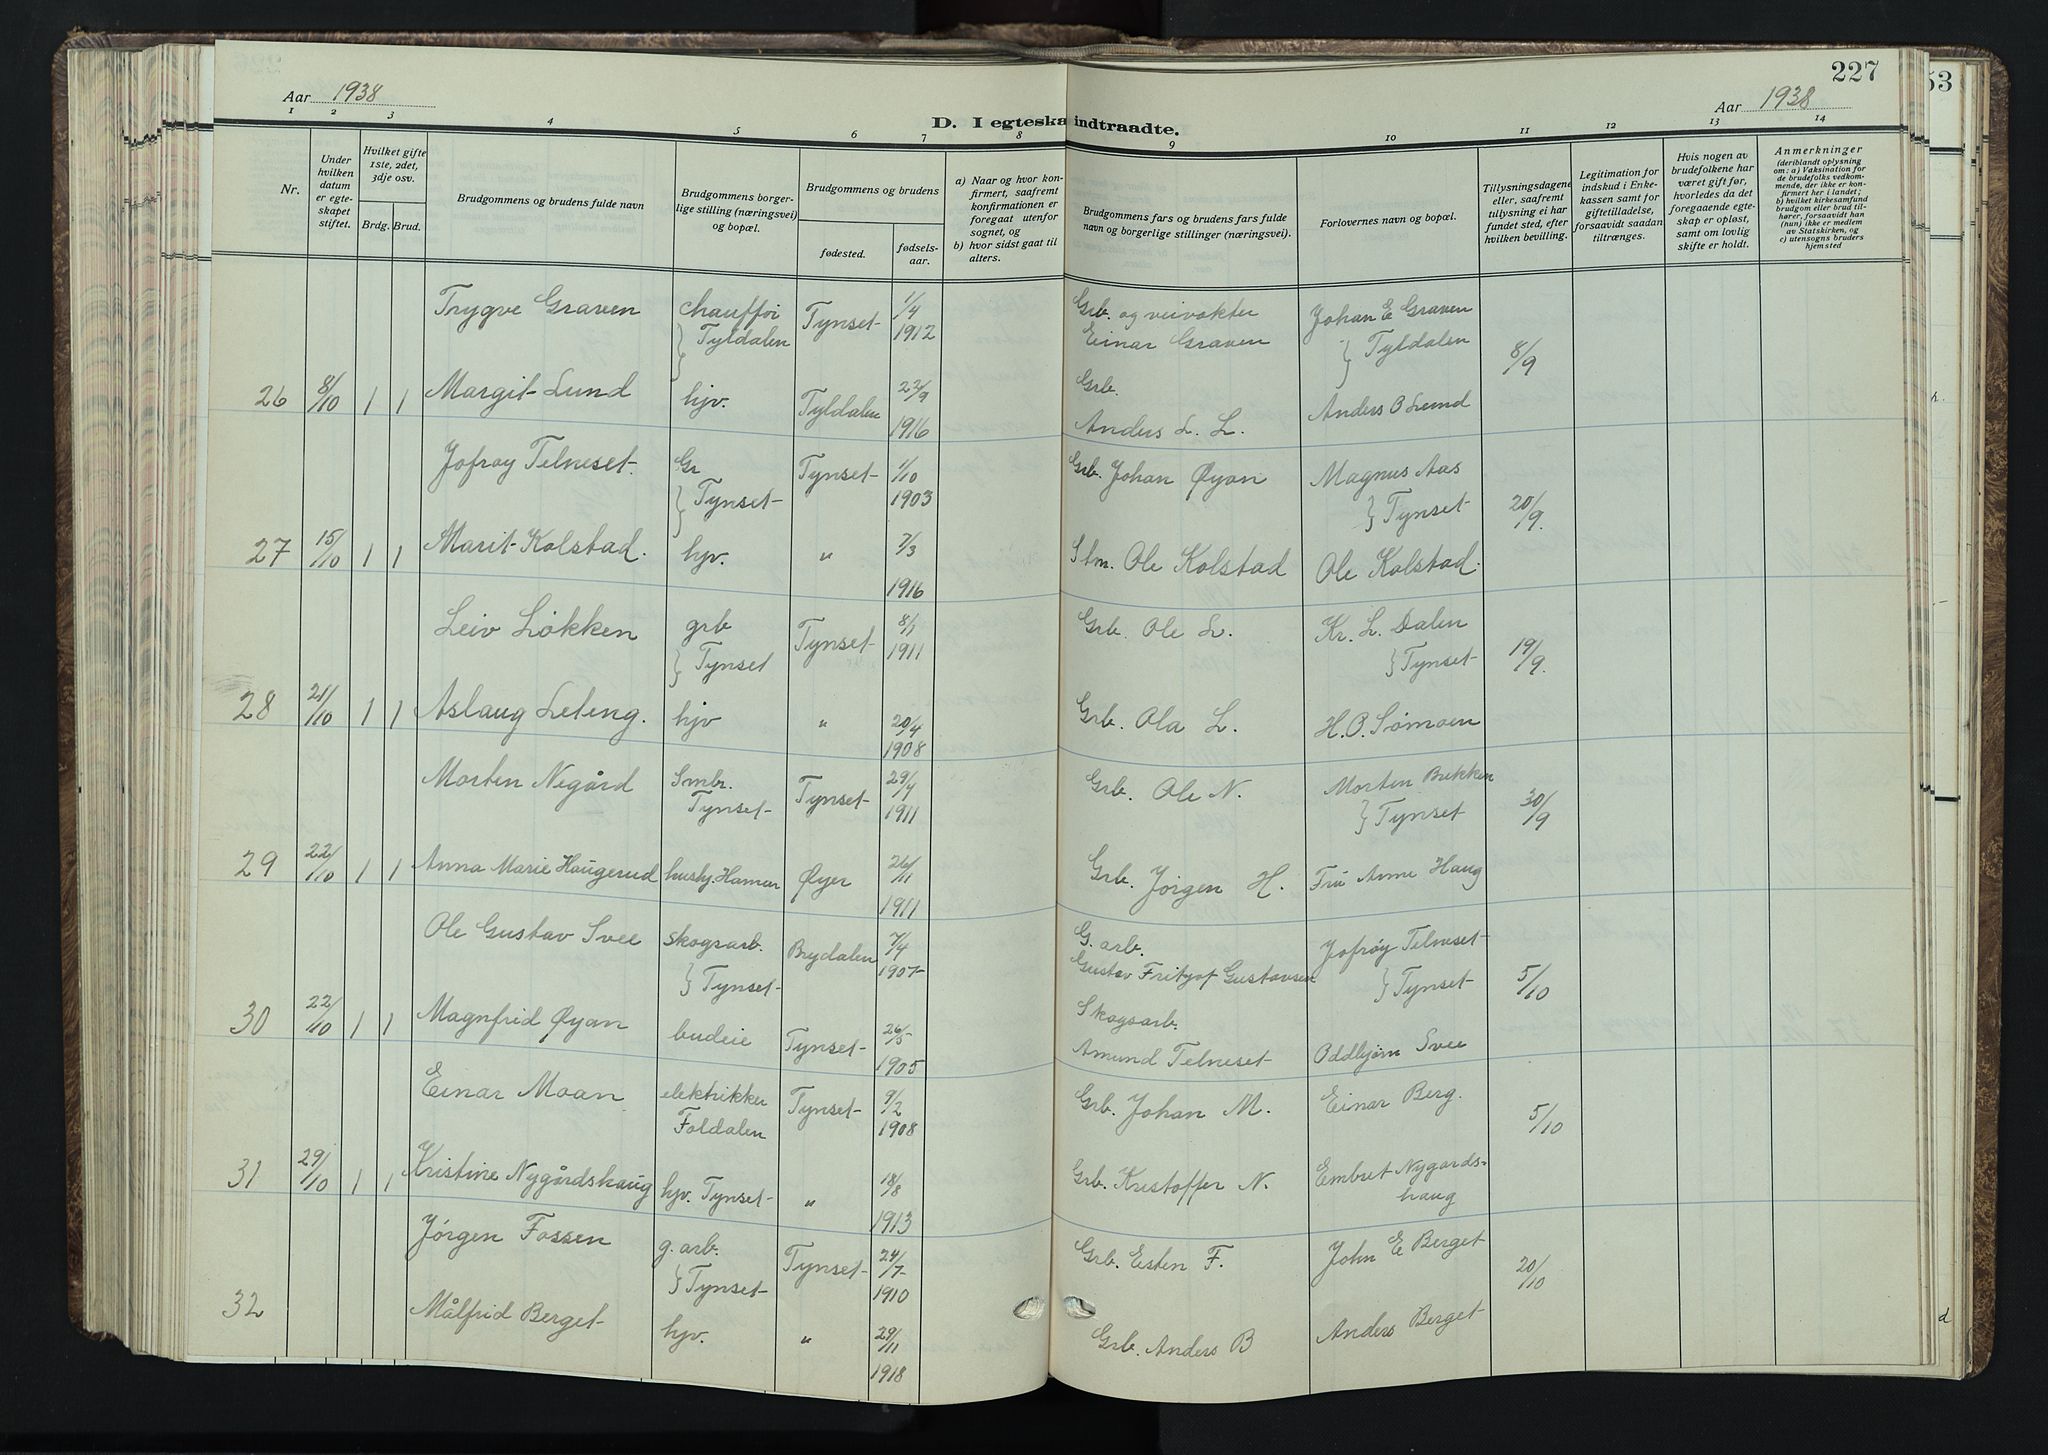 227
53
Aar 1938
Aar 1938
D. I egteska indtraadte.
1 2 3 4 5 6 7 8 9 10 11 12 13 14
Nr.
Under hvilken datum er egteskapet stiftet.
Hvilket gifte 1ste, 2det, 3dje osv.
Brdg. Brud.
Brudgommens og brudens fulde navn
Brudgommens borgerlige stilling (næringsvei) og bopæl.
Brudgommens og brudens
fødested.
fødselsaar.
a) Naar og hvor konfirmert, saafremt konfirmationen er foregaat utenfor sognet, og
b) hvor sidst gaat til alters.
Brudgommens fars og brudens fars fulde navn og borgerlige stillinger (næringsvei).
Forlovernes navn og bopæl.
Tillysningsdagene eller, saafremt tillysning ei har fundet sted, efter hvilken bevilling.
Legitimation for indskud i Enkekassen samt for giftetilladelse, forsaavidt saadan tiltrænges.
Hvis nogen av brudefolkene har været gift før, hvorledes da det foregaaende egteskap er opløst, samt om lovlig skifte er holdt.
Anmerkninger
(deriblandt oplysning om: a) Vaksination for de brudefolks vedkommende, der ikke er konfirmert her i landet;
b) hvilket kirkesamfund brudgom eller brud tilhører, forsaavidt han (hun) ikke er medlem av Statskirken, og
c) utensogns bruders hjemsted
Trygve Graven chauffør } Tyldalen Tynset 1/4 1912 Grb. og veivokter Einar Graven Johan E Graven } Tyldalen 8/9
26 8/10 1 1 Margit Lund hjv. Tyldalen 22/9 1916 Grb. Anders L. L. Anders O Lund
Jofrøy Telneset Gr } Tynset Tynset 1/10 1903 Grb. Johan Øyan Magnus Aas } Tynset 20/9.
27 15/10 1 1 Marit Kolstad. hjv. " 7/3 1916 Stm. Ole Kolstad Ole Kolstad.
Leiv Løkken grb } Tynset Tynset 8/1 1911 Grb. Ole L. Kr. L. Dalen } Tynset 19/9.
28 21/10 1 1 Aslaug Leteng. hjv " 20/4 1908 Grb. Ola L. H.O. Sømoen
Morten Negård Smbr. Tynset Tynset 29/4 1911 Grb. Ole N. Morten Brekken } Tynset 30/9
29 22/10 1 1 Anna Marie Haugerud hushj. Hamar Øyer 26/11 1911 Grb. Jørgen H. Fru Anne Haug
Ole Gustav Svee skogsarb. } Tynset Brydalen 7/4 1907 G. arb. Gustav Fritjof Gustavsen Jofrøy Telneset } Tynset 5/10
30 22/10 1 1 Magnfrid Øyan budeie Tynset 26/5 1905 Skogsarb. Amund Telneset Oddbjørn Svee
Einar Moan elektrikker Foldalen Tynset 9/2 1908 Grb. Johan M. Einar Berg. 5/10
31 29/10 1 1 Kristine Nygårdshaug hjv. Tynset " 18/8 1913 Grb. Kristoffer N. Embret Nygardshaug
Jørgen Fossen g. arb. } Tynset Tynset 24/7 1910 Grb. Esten F. John E Berget 20/10
32 Målfrid Berget hjv. " 29/11 1918 Grb. Anders B Anders Berget